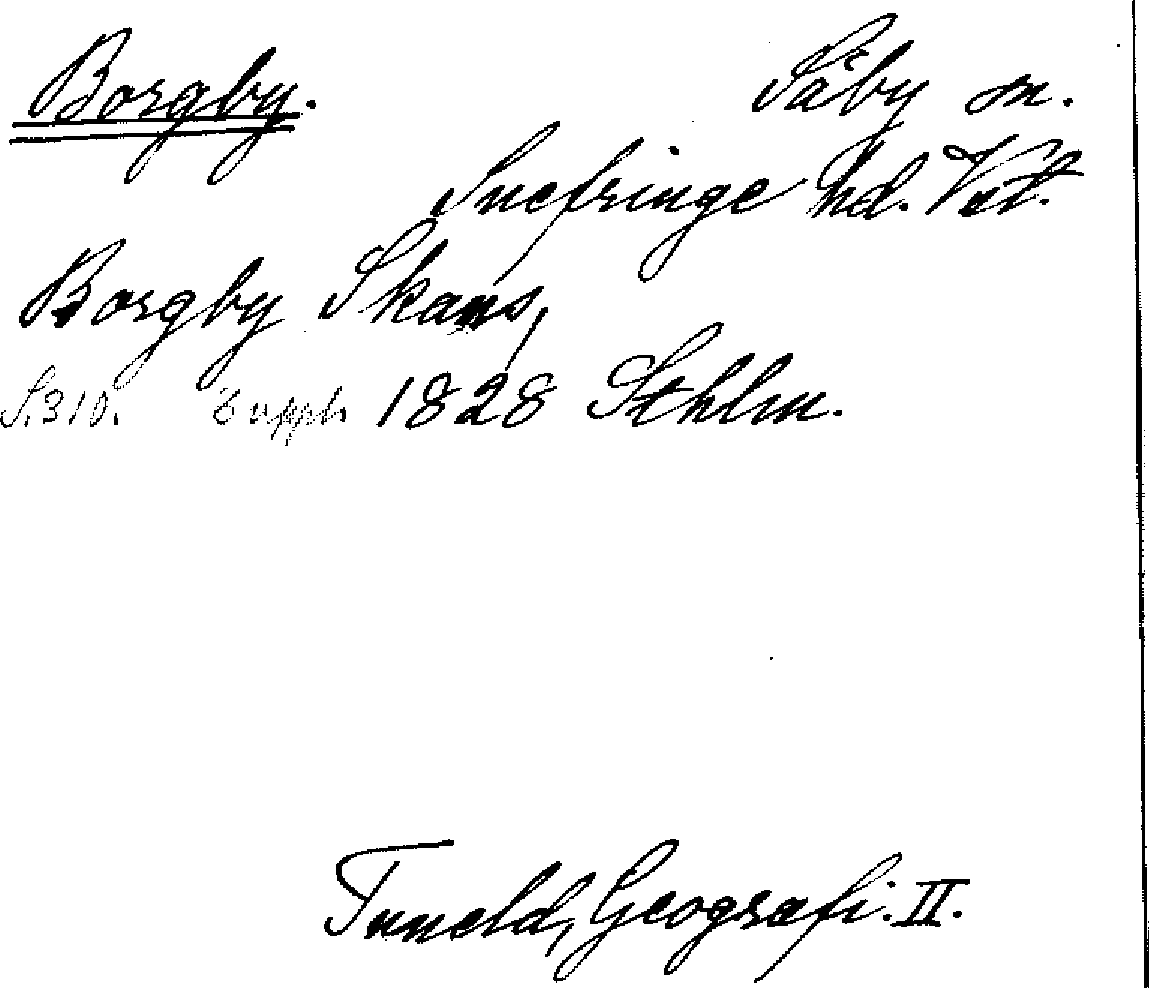 Borgby. Säby sn.
Snefringe hd. Vstl.
Borgby Skans,
S. 310. 8 uppl. 1828 Sthlm.
Tuneld, Geografi. II.